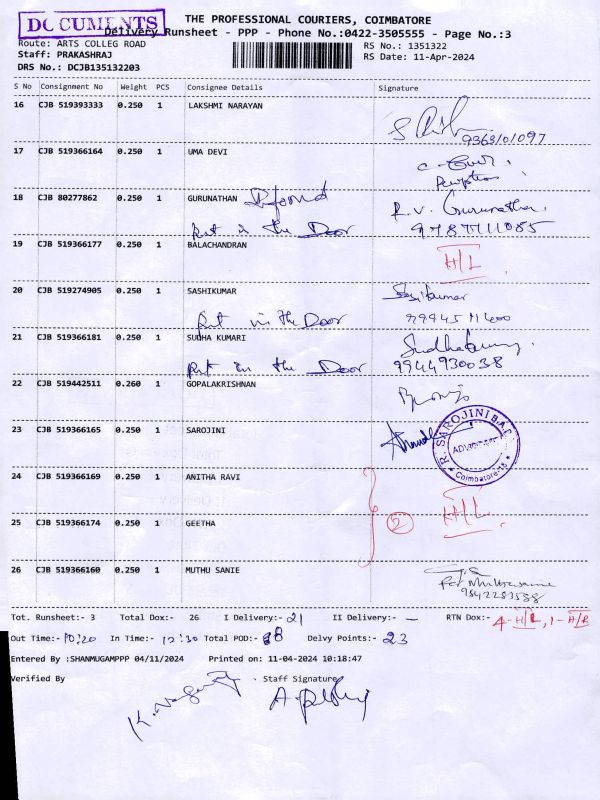 DOCUMENTS
THE PROFESSIONAL COURIERS, COIMBATORE
Delivery Runsheet - PPP - Phone No.:0422-3505555 - Page No.:3
Route: ARTS COLLEG ROAD
RS No.: 1351322
Staff: PRAKASHRAJ
RS Date: 11-Apr-2024
DRS No.: DCJB135132203
S No Consignment No Weight PCS Consignee Details Signature
16 CJB 519393333 0.250 1 LAKSHMI NARAYAN
9363101097
17 CJB 519366164 0.250 1 UMA DEVI
18 CJB 80277862 0.250 1 GURUNATHAN
R.V. Gurunathan
Put in the Door 9787711085
19 CJB 519366177 0.250 1 BALACHANDRAN
H/L
20 CJB 519274905 0.250 1 SASHIKUMAR Sasikumar
Put in the Door 99945 11400
21 CJB 519366181 0.250 1 SUDHA KUMARI Sudhakumary
Put in the Door 9944930038
22 CJB 519442511 0.260 1 GOPALAKRISHNAN
23 CJB 519366165 0.250 1 SAROJINI
R. SAROJINI B.A.L. ADVOCATE Coimbatore-18
24 CJB 519366169 0.250 1 ANITHA RAVI
H/L
25 CJB 519366174 0.250 1 GEETHA 2
26 CJB 519366160 0.250 1 MUTHU SANIE
For
9842283538
Tot. Runsheet:- 3 Total Dox:- 26 I Delivery:- 21 II Delivery:- — RTN Dox:- 4-H/L, 1-H/B
Out Time:- 10:20 In Time:- 12:30 Total POD:- 8 Delvy Points:- 23
Entered By :SHANMUGAMPPP 04/11/2024 Printed on: 11-04-2024 10:18:47
Verified By Staff Signature